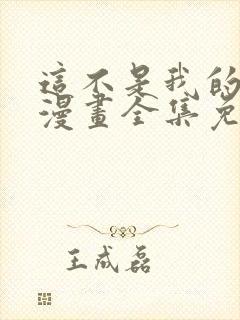 這不是我的
漫畫全集免
王成磊